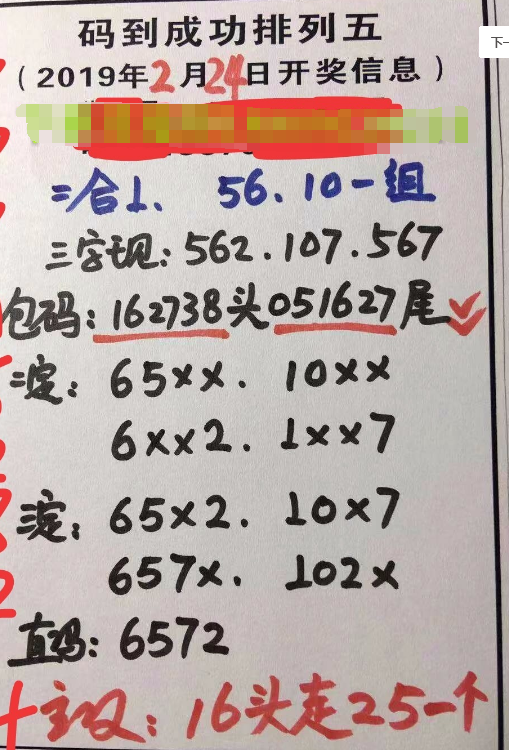 码到成功排列五
下一
（2019年2月24日开奖信息）
二合上、 56.10一组
三字现：562.107.567
包码：162738头051627尾
二定：65××. 10××
6××2. 1××7
三定：65×2. 10×7
657×. 102×
直码：6572
主攻：16头走25一个